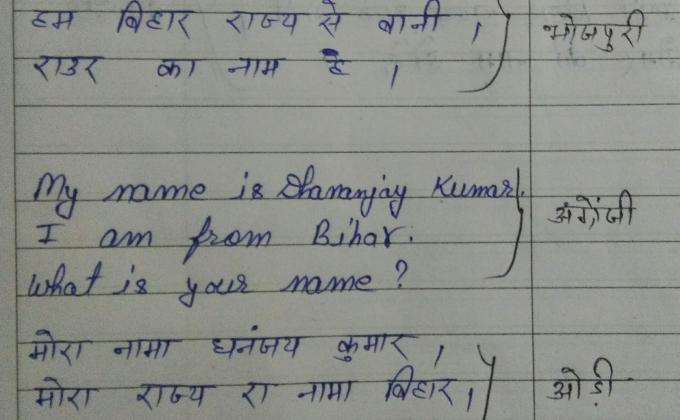 हम बिहार राज्य से बानी ।
भोजपुरी
राउर का नाम है ।
My name is Dhananjay Kumar.
I am from Bihar.
अंग्रेंजी
What is your name ?
मोरा नामा धनंजय कुमार ।
मोरा राज्य रा नामा बिहार ।
ओड़ी